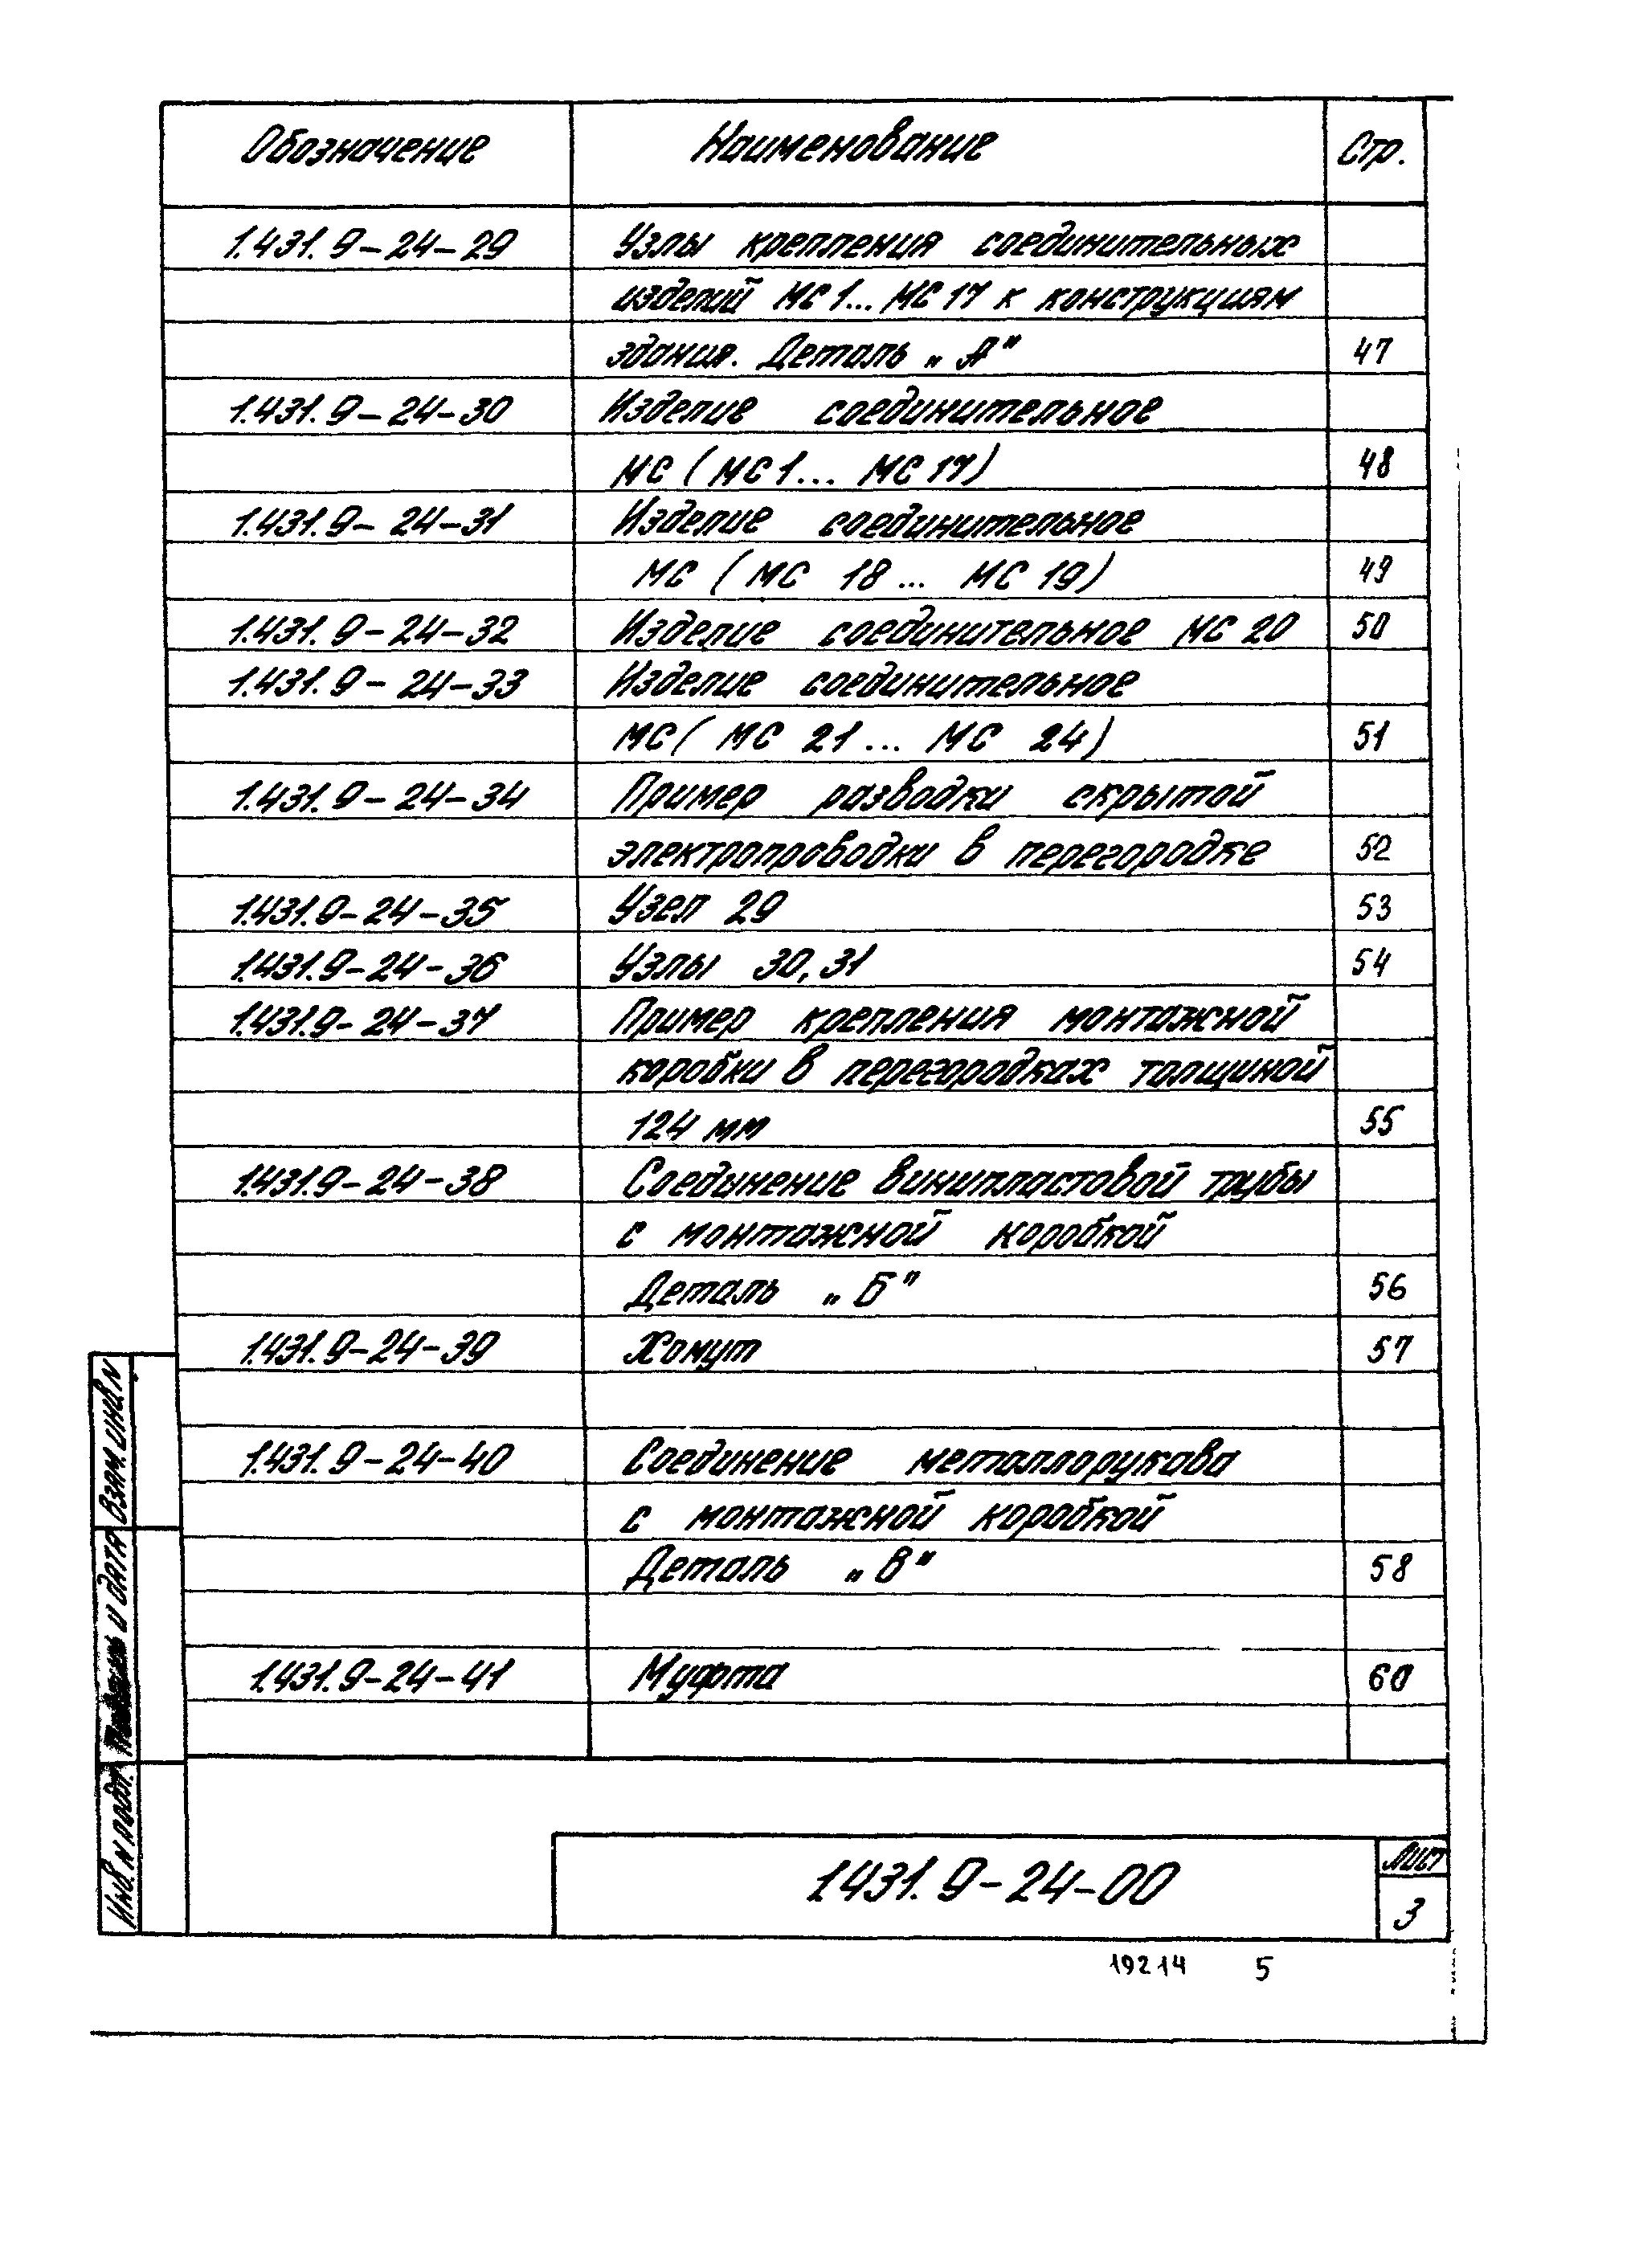 Обозначение Наименование Стр.
1.431.9-24-29 Узлы крепления соединительных
изделий МС1... МС17 к конструкциям
здания. Деталь „А" 47
1.431.9-24-30 Изделие соединительное
МС (МС1... МС17) 48
1.431.9-24-31 Изделие соединительное
МС (МС 18... МС 19) 49
1.431.9-24-32 Изделие соединительное МС 20 50
1.431.9-24-33 Изделие соединительное
МС( МС 21... МС 24) 51
1.431.9-24-34 Пример разводки скрытой
электропроводки в перегородке 52
1.431.9-24-35 Узел 29 53
1.431.9-24-36 Узлы 30,31 54
1.431.9-24-37 Пример крепления монтажной
коробки в перегородках толщиной
124 мм 55
1.431.9-24-38 Соединение винипластовой трубы
с монтажной коробкой
Деталь „Б" 56
1.431.9-24-39 Хомут 57
1.431.9-24-40 Соединение металлорукава
с монтажной коробкой
Деталь „В" 58
1.431.9-24-41 Муфта 60
Взам. инв. N
и дата
Инв. N подл.
1.431.9-24-00
Лист
3
19214 5